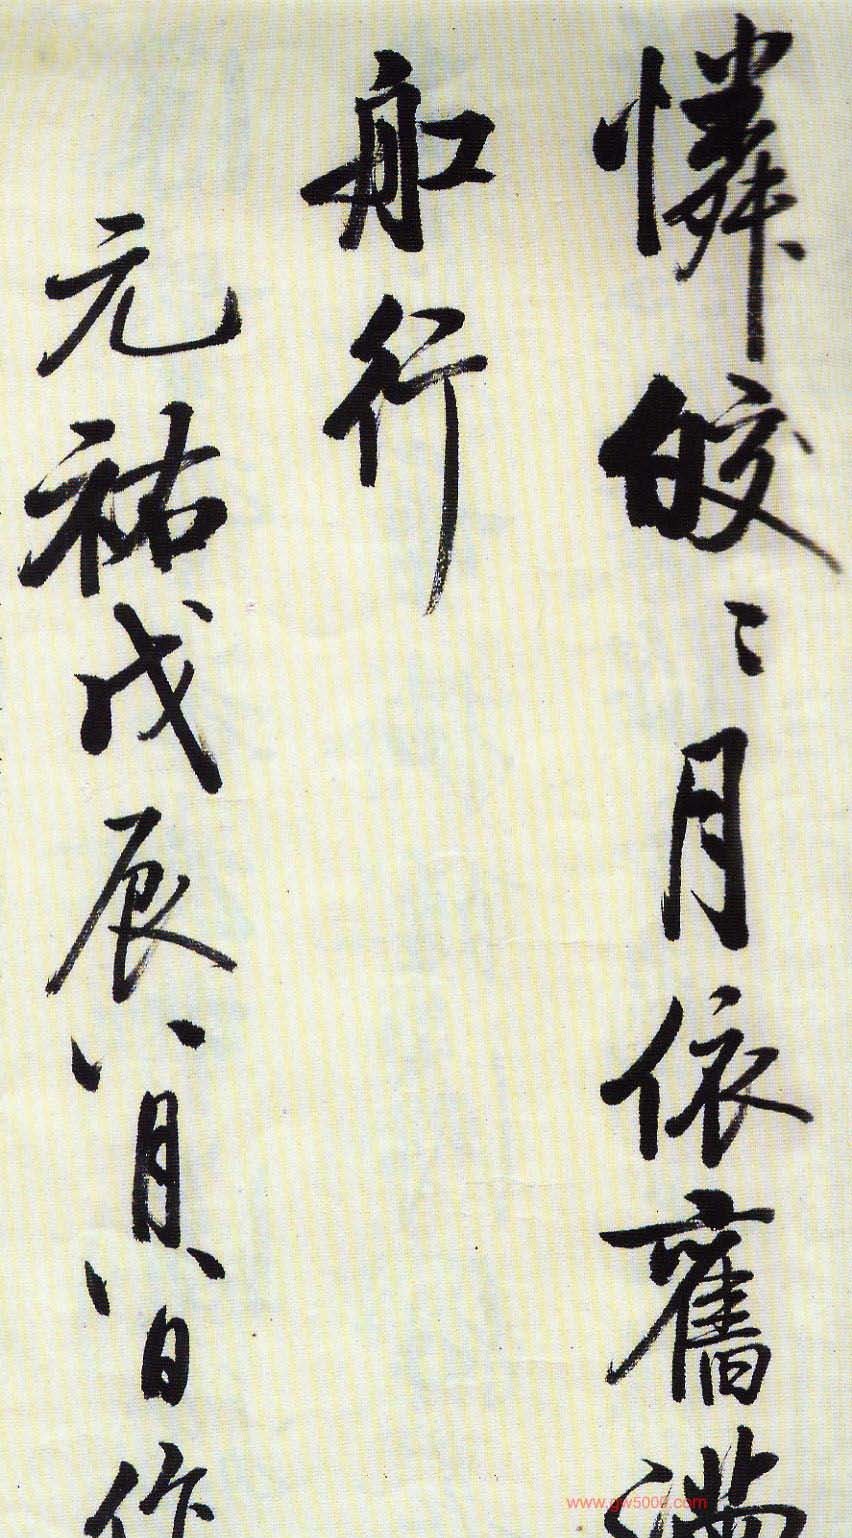 憐皎〻月依舊滿
舡行
元祐戊辰八月八日作
www.gw5000.com